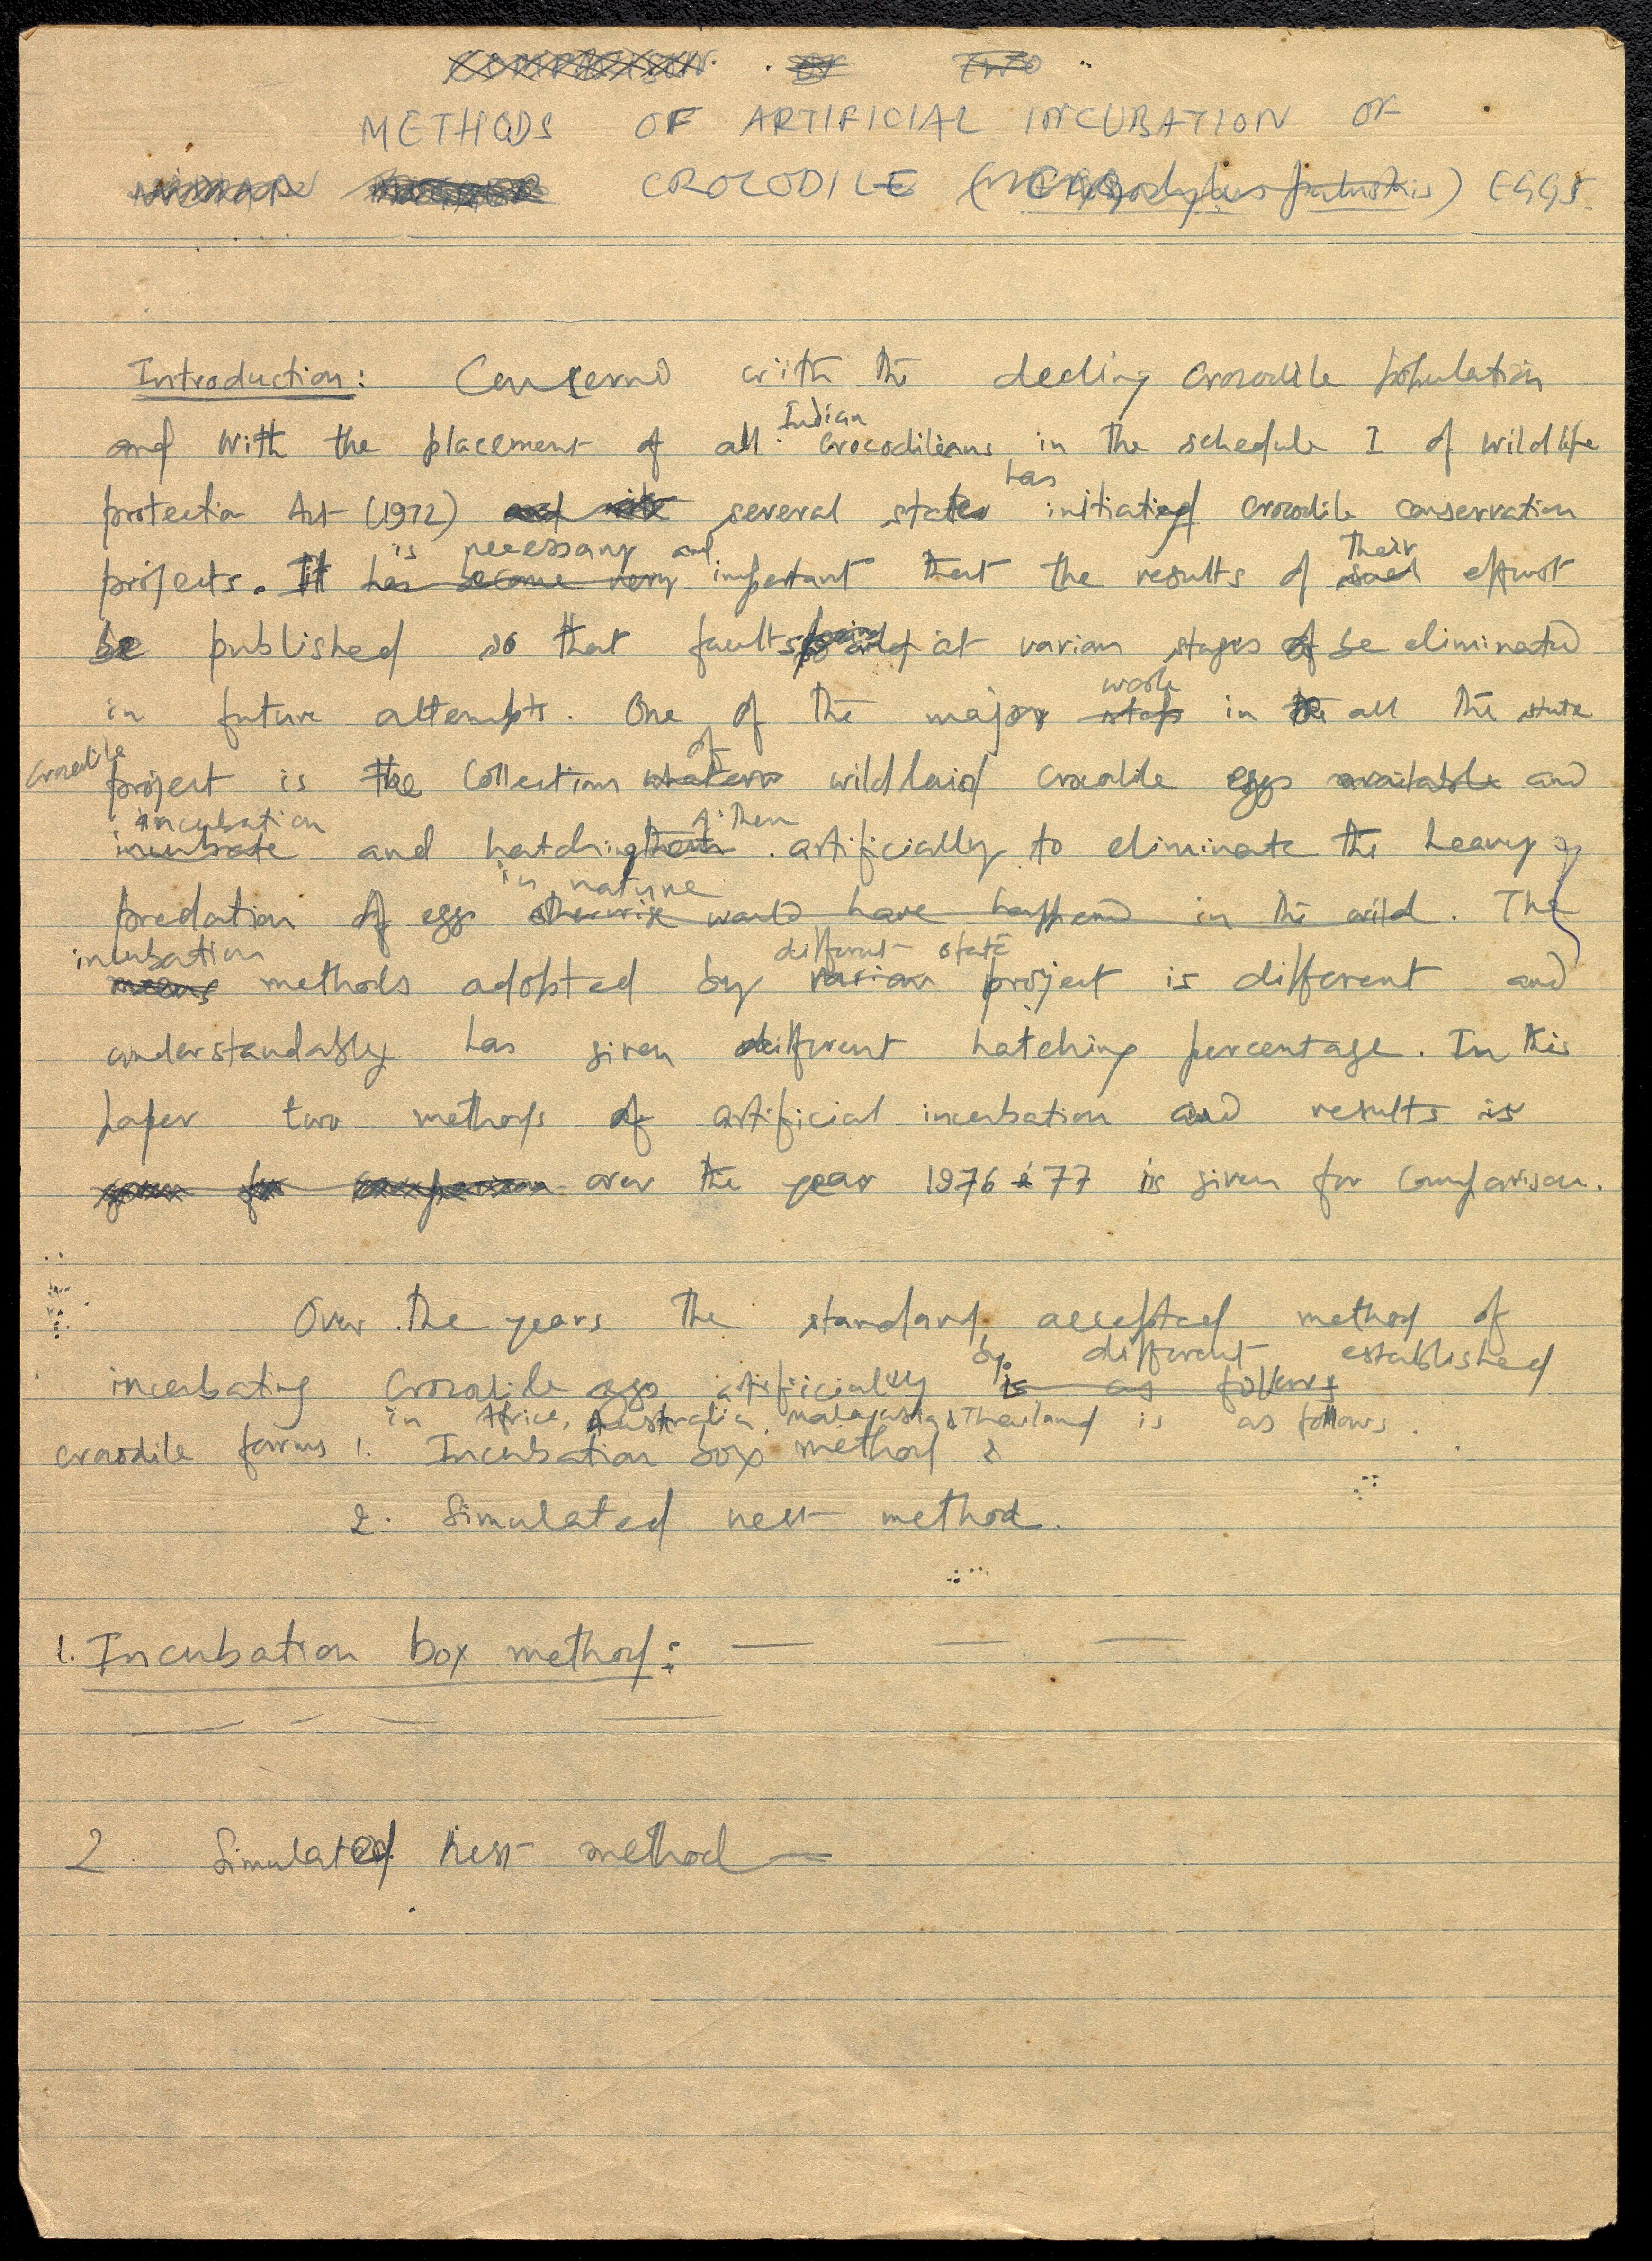 COMPARISON OF TWO
METHODS OF ARTIFICIAL INCUBATION OF
CROCODILE (Crocodylus palustris) EGGS
Introduction: Concerned with the decling crocodile population
and with the placement of all Indian crocodileans in the schedule I of wild life
protection Act (1972) and with several states has initiated crocodile conservation
projects. It is necessary and important that the results of their effort
be published so that faults at various stages be eliminated
in future attempts. One of the major work in all the state
crocodile project is the collection of wild laid crocodile eggs available and
incubation and hatching of them artificially to eliminate the heavy
predation of eggs in nature otherwise would have happened in the wild. The
incubation methods adopted by different state project is different and
understandably has given different hatching percentage. In this
paper two methods of artificial incubation and results is
given for comparison over the year 1976 & 77 is given for comparison.
Over the years the standard accepted method of
incubating crocodile eggs artificially is as follows by different established
crocodile farms in Africa, Australia, Malayasia & Thailand is as follows.
1. Incubation box method &
2. Simulated nest method.
1. Incubation box method:
2. Simulated nest method